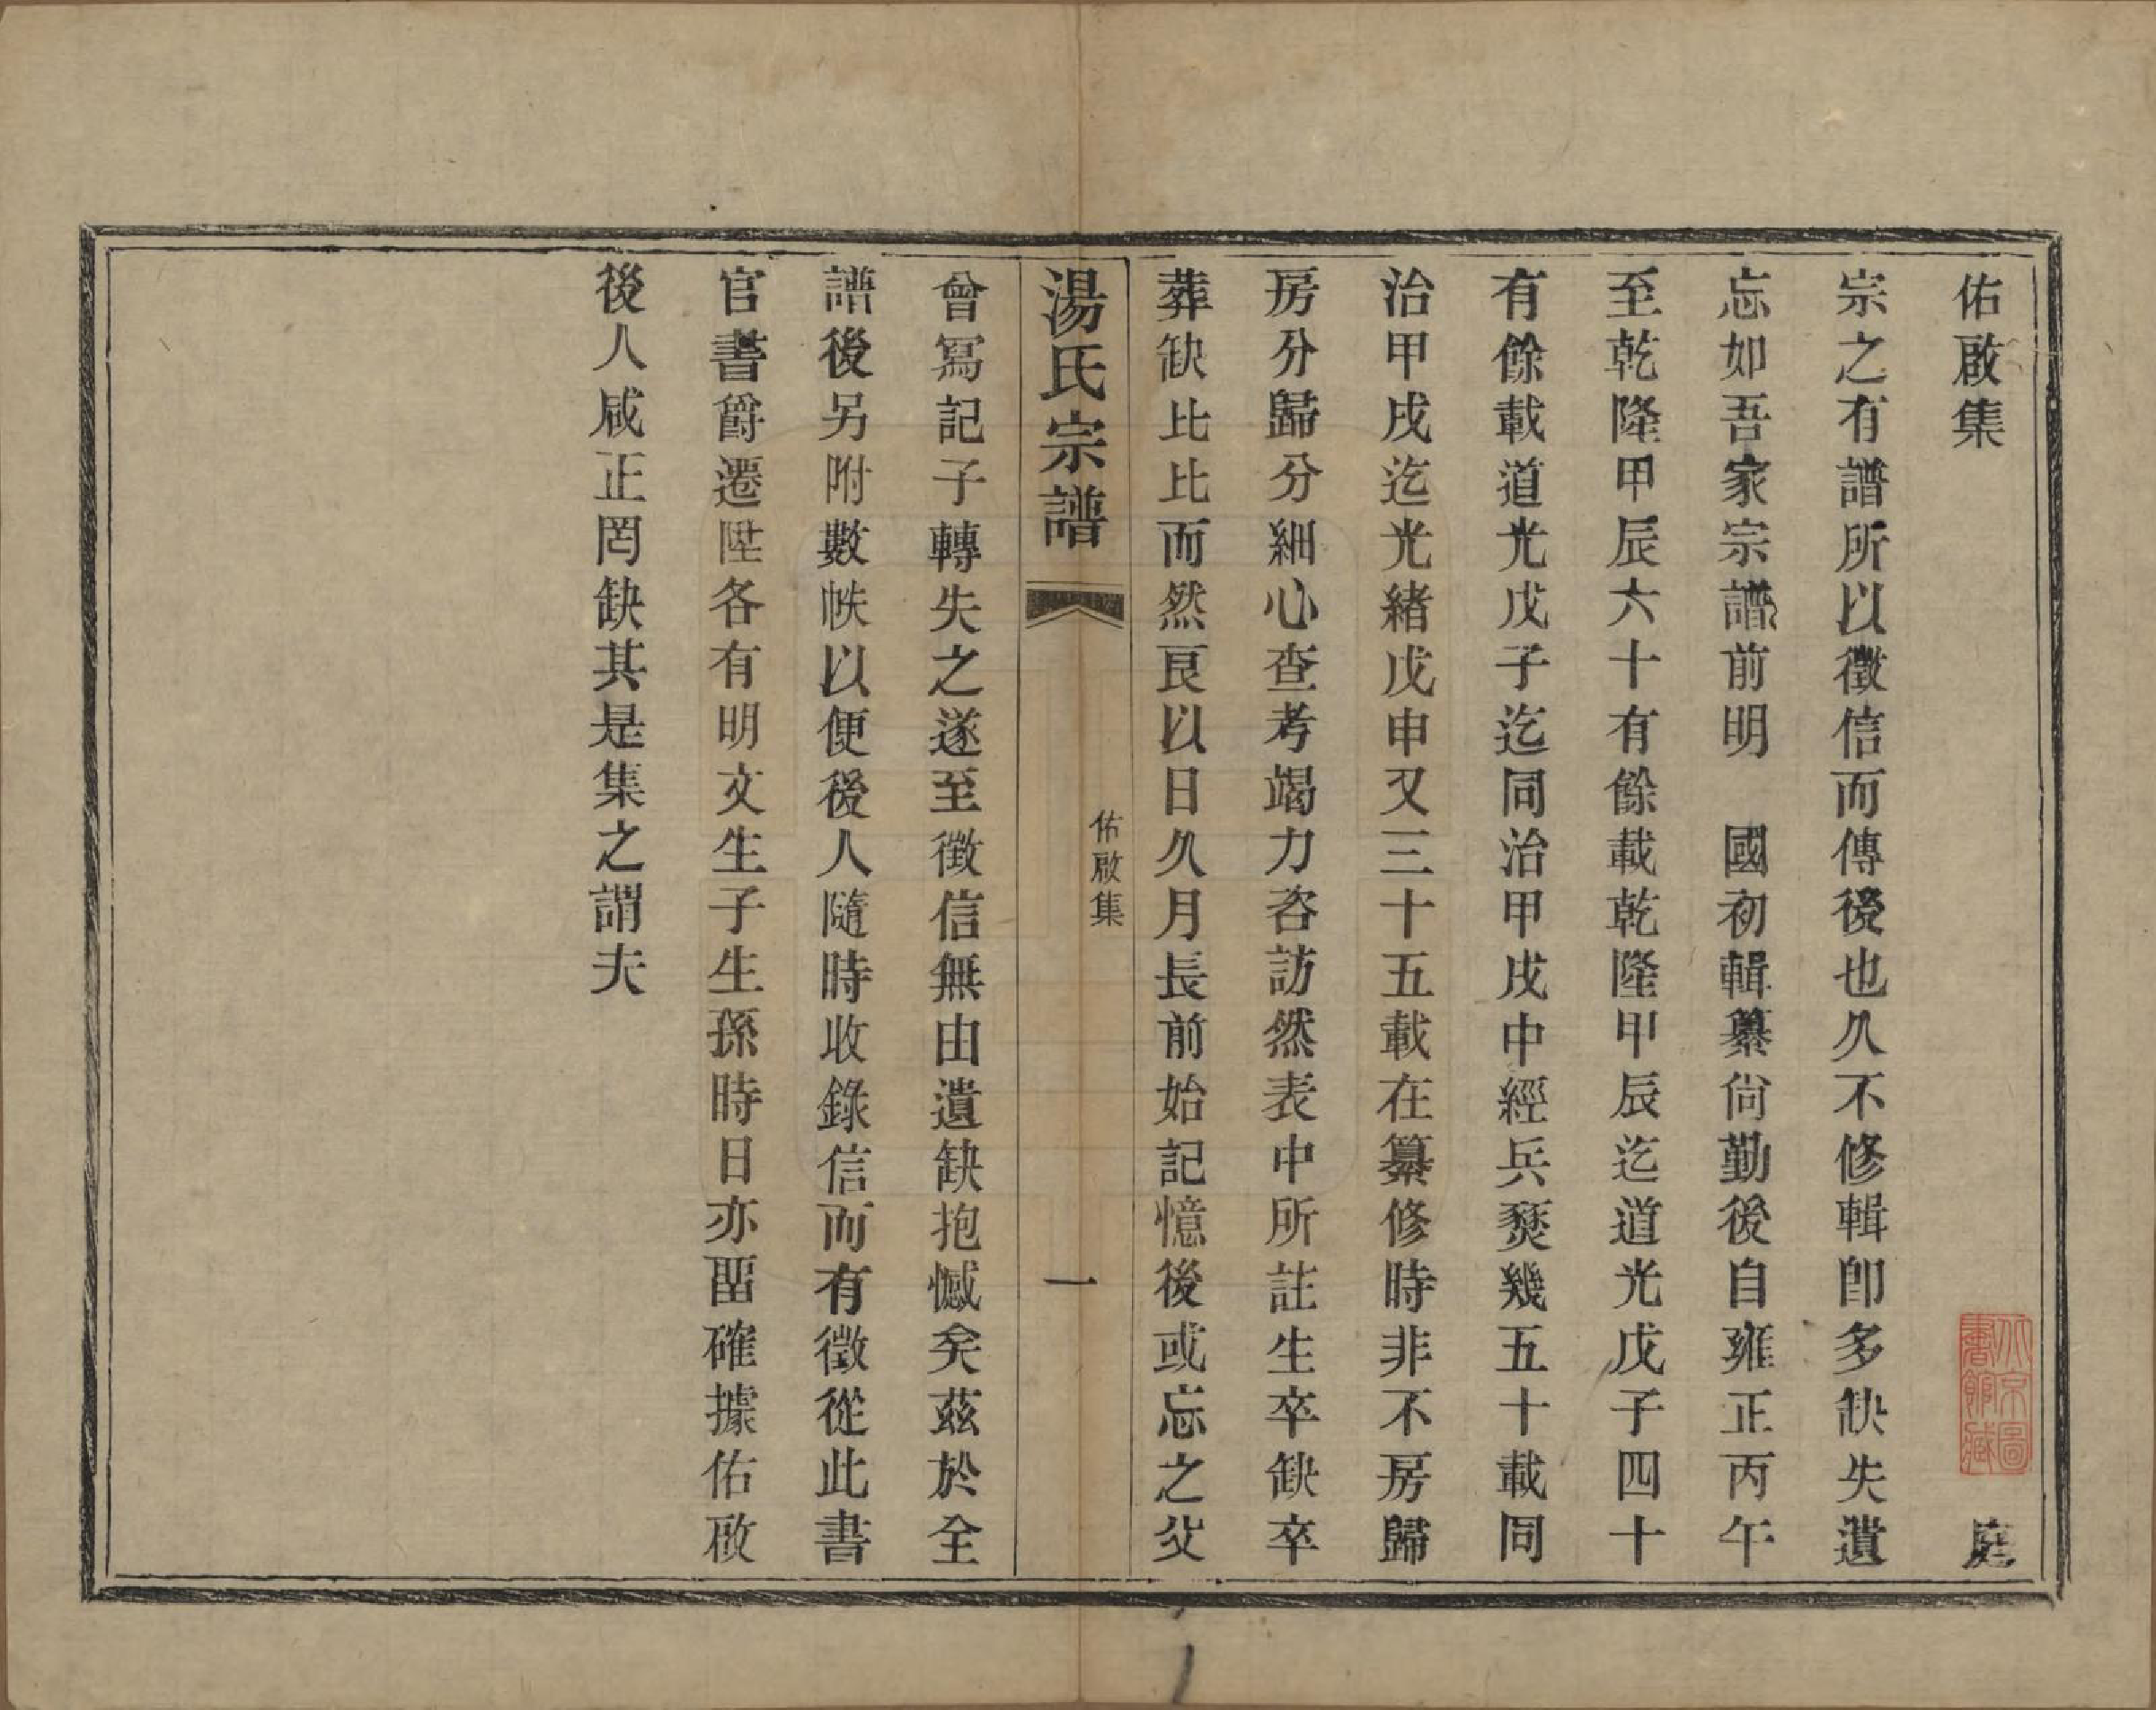 佑啟集 庭
宗之有譜所以徵信而傳後也久不修輯卽多缺失遺
忘如吾家宗譜前明　國初輯纂尙勤後自雍正丙午
至乾隆甲辰六十有餘載乾隆甲辰迄道光戊子四十
有餘載道光戊子迄同治甲戌中經兵燹幾五十載同
治甲戌迄光緒戊申又三十五載在纂修時非不房歸
房分歸分細心查考竭力咨訪然表中所註生卒缺卒
葬缺比比而然良以日久月長前始記憶後或忘之父
湯氏宗譜
佑啟集
一
曾寫記子轉失之遂至徵信無由遺缺抱憾矣茲於全
譜後另附數帙以便後人隨時收錄信而有徵從此書
官書爵遷陞各有明文生子生孫時日亦畱確據佑啟
後人咸正罔缺其是集之謂夫
北京圖書館藏